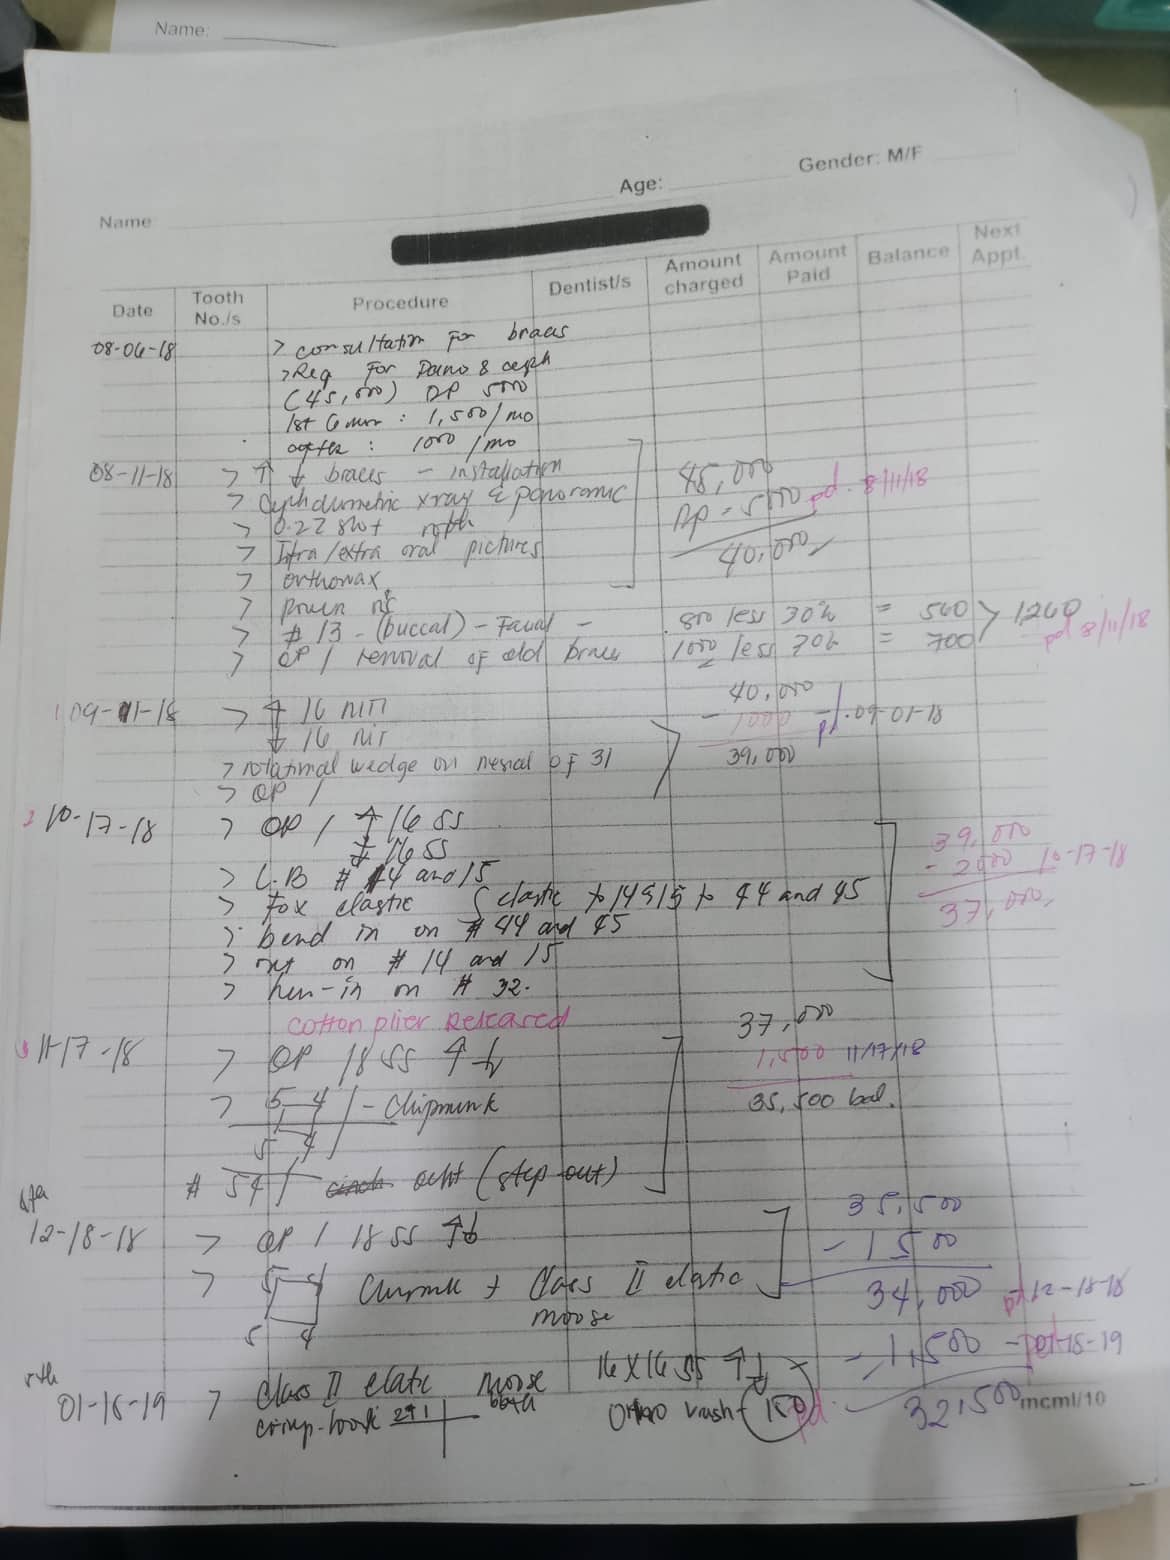 Name:
Gender: M/F
Age:
Name
Date
Tooth No./s
Procedure
Dentist/s
Amount charged
Amount Paid
Balance
Next Appt.
08-06-18 > consultation for braces
> Req for Pano & ceph
(45,000) DP 5000
1st 6 mos : 1,500/mo
after : 1000 /mo
08-11-18 > ↑ ↓ braces - installation 45,000
> Cephalometric xray & panoramic DP - 5000 pd. 8/11/18
> 0.22 slot roth 40,000
> Intra/extra oral pictures
> orthowax
>
> # 13 - (buccal) - - 800 less 30% = 560 > 1260
> OP / removal of old braces 1000 less 30% = 700 pd 8/11/18
1 09-11-18 > ↑ 16 niti 40,000
↓ 16 niti - 1000 pd. 09-01-18
> rotational wedge on mesial of 31 39,000
> OP /
2 10-17-18 > OP / ↑ 16 SS 39,000
↓ 16 SS - 2000 10-17-18
> L.B # 14 and 15 37,000
> Fox elastic { elastic to 14 & 15 to 44 and 45
> bend in on # 44 and 45
> out on # 14 and 15
> in on # 32.
Cotton plier Released
3 11-17-18 > OP 18 SS ↑ ↓ 37,000
1,500 11/17/18
> 5 4 / - Chipmunk 35,500 bal.
5 4
# 54 / (step out)
4th
12-18-18 > OP / 18 SS ↑↓ 35,500
- 1500
> 5 4 + Class II elastic 34,000 pd 12-18-18
5 4 moose
- 1,500
5th
01-16-19 > Class II elatic moose 16 X 16 SS ↑↓ 32,500
crimp-hook Ortho wash pd.
mcml/10